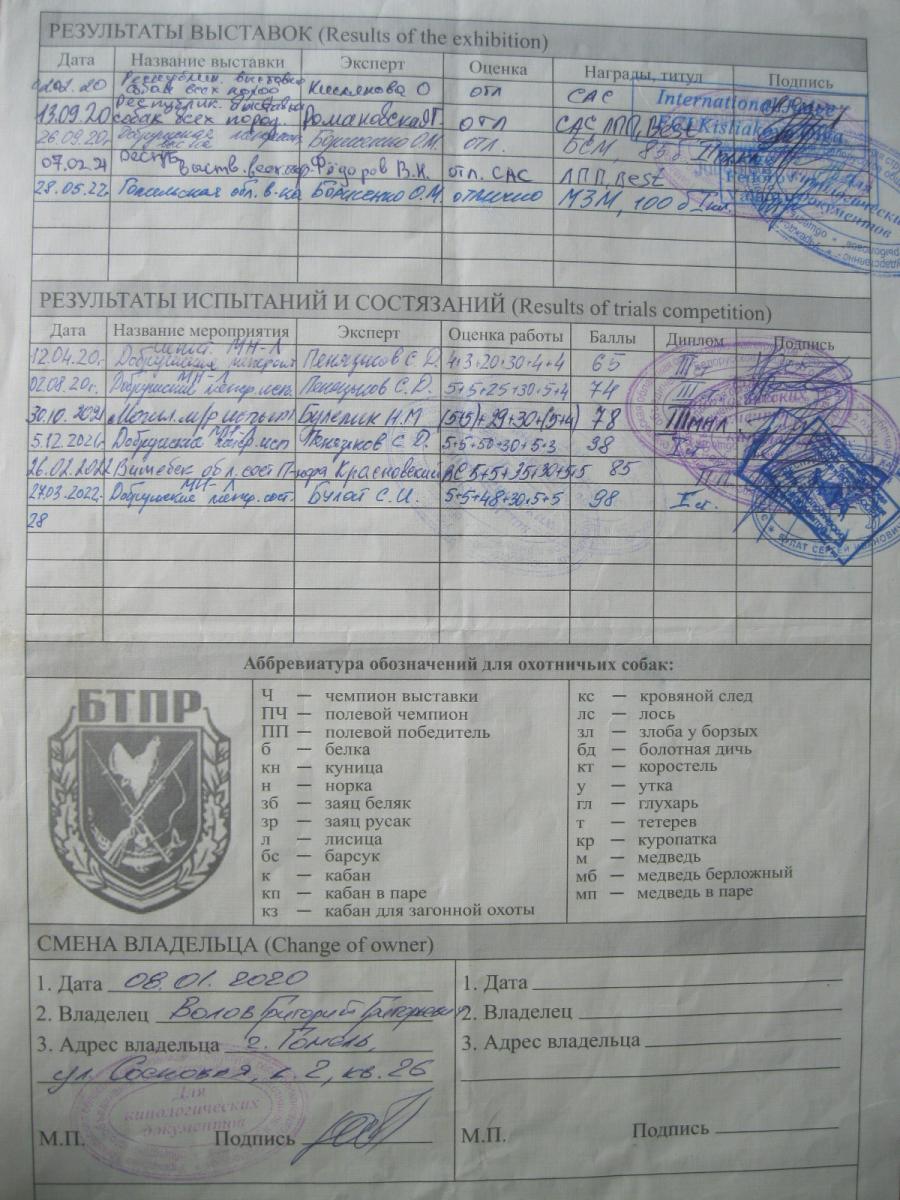 РЕЗУЛЬТАТЫ ВЫСТАВОК (Results of the exhibition)
Дата Название выставки Эксперт Оценка Награды, титул Подпись
Республик. выставка собак всех пород Кислякова О отл САС
13.09.20 Республик. выставка собак всех пород. Романовская Г. отл САС, ЛПП, Best
26.09.20г Добрушская Борисенко О.М. отл. БСМ, 85 б.
07.02.21 выств. Фёдоров В.Н. отл. САС ЛПП, Best
28.05.22г Гомельская обл. в-ка Борисенко О.М. отлично МЗМ, 100 б I
International
FCI Kisliakova
РЕЗУЛЬТАТЫ ИСПЫТАНИЙ И СОСТЯЗАНИЙ (Results of trials competition)
Дата Название мероприятия Эксперт Оценка работы Баллы Диплом Подпись
12.04.20г МН-Л Добрушские С.Д. 4+3+20+30+4+4 65 III
02.08.20г. МН-Л Добрушский исп. С.Д. 5+5+25+30+5+4 74 III
30.10.2021 М/р Н.М (5+5)+29+30+(5+4) 78 III
5.12.2021г Добрушские исп С.Д. 5+5+50+30+5+3 98 I
26.02.2022 Витебск обл. сост Красновский АС 5+5+35+30+5+5 85
27.03.2022г МН-Л Добрушские сост. Булат С.И. 5+5+48+30+5+5 98 I
28
Аббревиатура обозначений для охотничьих собак:
БТПР
Ч — чемпион выставки
ПЧ — полевой чемпион
ПП — полевой победитель
б — белка
кн — куница
н — норка
зб — заяц беляк
зр — заяц русак
л — лисица
бс — барсук
к — кабан
кп — кабан в паре
кз — кабан для загонной охоты
кс — кровяной след
лс — лось
зл — злоба у борзых
бд — болотная дичь
кт — коростель
у — утка
гл — глухарь
т — тетерев
кр — куропатка
м — медведь
мб — медведь берложный
мп — медведь в паре
СМЕНА ВЛАДЕЛЬЦА (Change of owner)
1. Дата 08.01.2020
2. Владелец Волов Григорий
3. Адрес владельца г. Гомель,
ул. Сосновая, к. 2, кв. 26
Для
кинологических
документов
М.П. Подпись
1. Дата
2. Владелец
3. Адрес владельца
М.П. Подпись